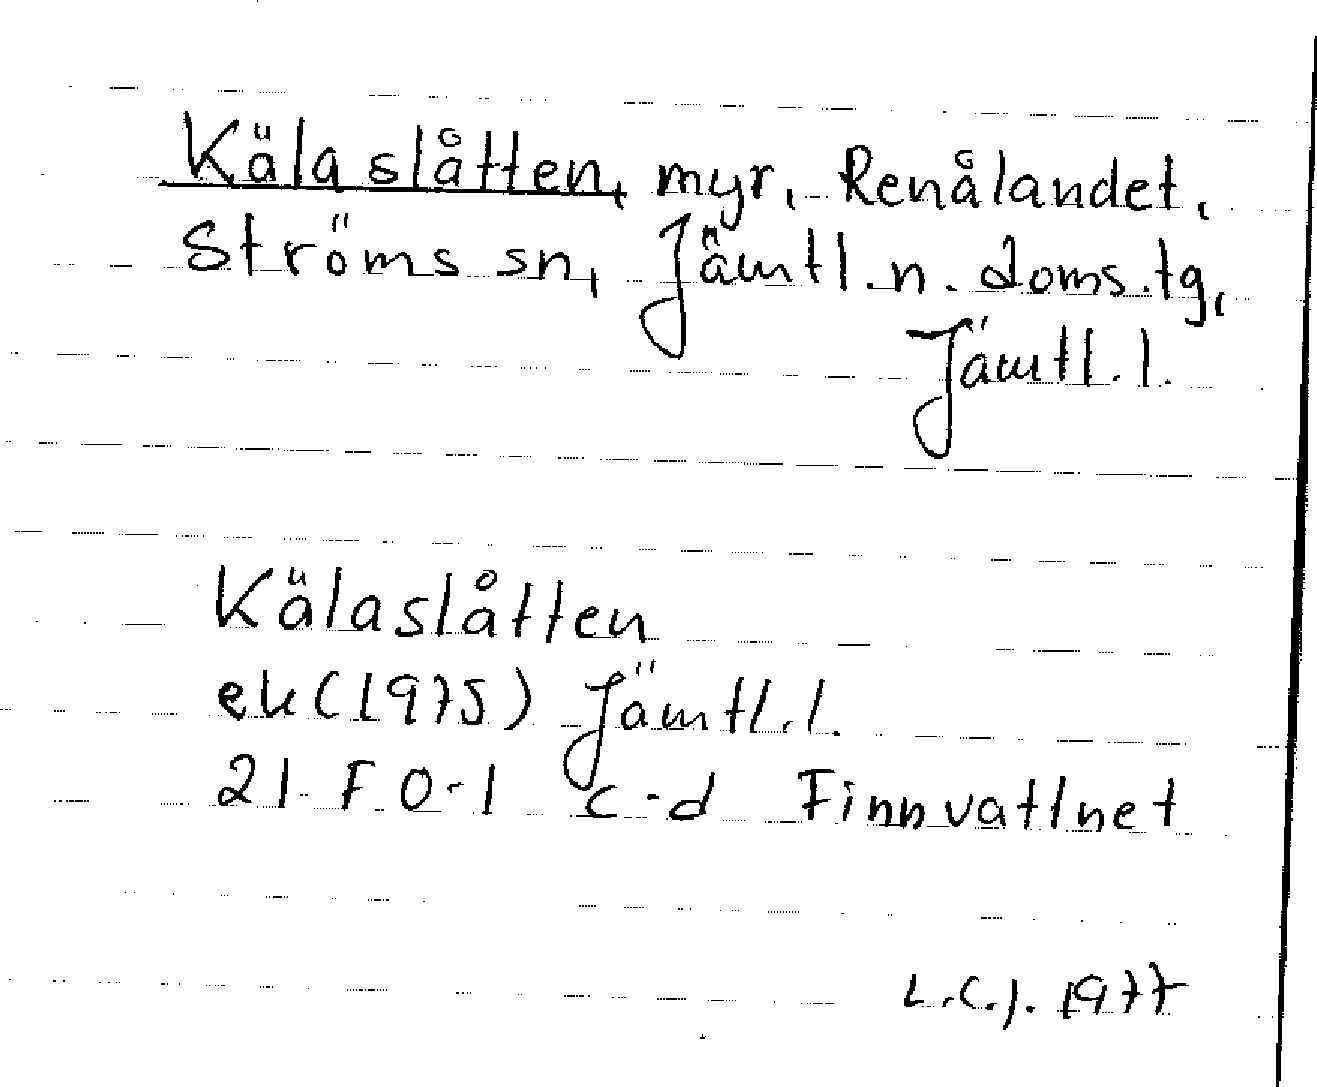 Kälaslåtten, myr, Renålandet,
Ströms sn, Jämtl. n. doms. tg,
Jämtl. l.
Kälaslåtten
ek (1975) Jämtl. l.
21 F 0-1 c-d Finnvattnet
L.C.J. 1977